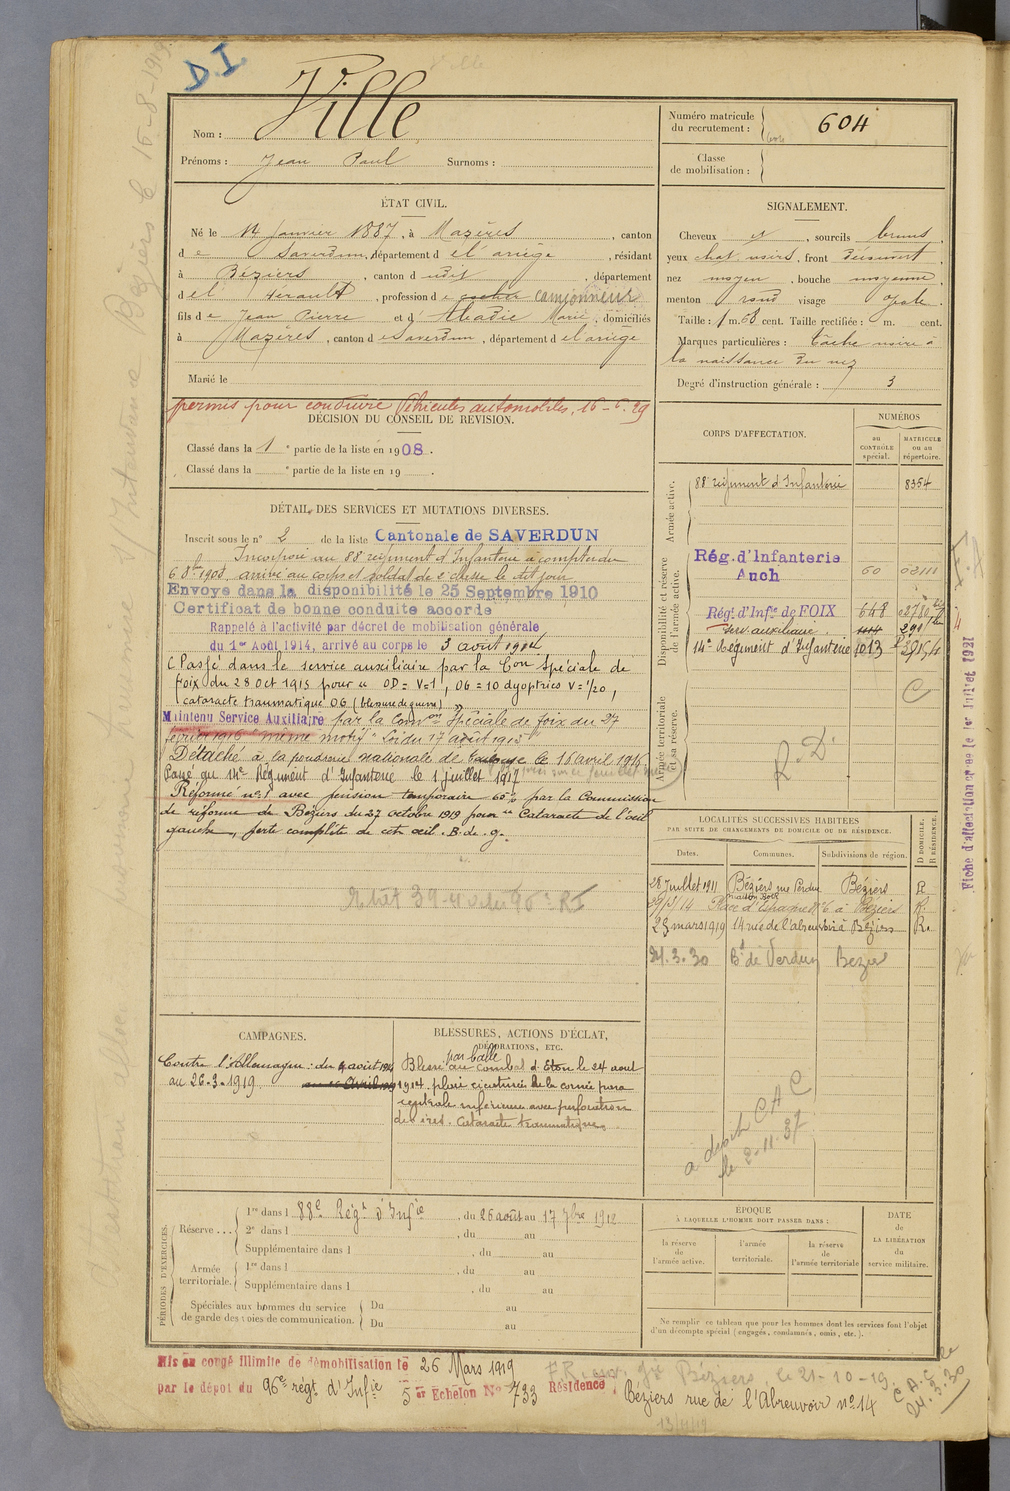 D.I.
Ville
Nom : Ville
Prénoms : Jean Paul Surnoms :
Numéro matricule du recrutement : 604
Classe de mobilisation :
ÉTAT CIVIL.
Né le 14 janvier 1887, à Mazères, canton
de Saverdun, département de l'ariège, résidant
à Béziers, canton dudit, département
de l'Hérault, profession de cocher camionneur
fils de Jean Pierre et d'Abadie Marie, domiciliés
à Mazères, canton de Saverdun, département de l'ariège
Marié le
permis pour conduire Véhicules automobiles, 16-6-29
SIGNALEMENT.
Cheveux et, sourcils bruns,
yeux chat. noirs, front découvert,
nez moyen, bouche moyenne,
menton rond visage ovale.
Taille : 1 m. 68 cent. Taille rectifiée : m. cent.
Marques particulières : tâche noire à
la naissance du nez
Degré d'instruction générale : 3
DÉCISION DU CONSEIL DE REVISION.
Classé dans la 1e partie de la liste en 1908.
Classé dans la e partie de la liste en 19 .
DÉTAIL DES SERVICES ET MUTATIONS DIVERSES.
Inscrit sous le n° 2 de la liste Cantonale de SAVERDUN
Incorporé au 88e régiment d'Infanterie à compter du
6 8bre 1908, arrivé au corps et soldat de 2e classe le dit jour.
Envoyé dans la disponibilité le 25 Septembre 1910
Certificat de bonne conduite accordé
Rappelé à l'activité par décret de mobilisation générale
du 1er Août 1914, arrivé au corps le 3 août 1914
Passé dans le service auxiliaire par la Con Spéciale de
foix du 28 oct 1915 pour « OD = V=1, OG = 10 dyoptrics V=1/20,
cataracte traumatique OG (blessure de guerre) »
Maintenu Service Auxiliaire par la Comon Spéciale de foix du 27
février 1916 même motif Loi du 17 août 1915
Détaché à la poudrerie nationale de Toulouse le 16 avril 1916
Passé au 14e Régiment d'Infanterie le 1 juillet 1917
Réformé n° 1 avec pension temporaire 65 % par la Commission
de réforme de Béziers du 27 octobre 1919 pour « Cataracte de l'œil
gauche, perte complète de cet œil. B. de g.
CORPS D'AFFECTATION.
NUMÉROS
au CONTRÔLE spécial.
MATRICULE ou au répertoire.
Armée active.
88e régiment d'Infanterie 8354
Disponibilité et réserve de l'armée active.
Rég. d'Infanterie
Auch 60
Rég. d'Infie de FOIX 648
Serv. auxiliaire
14e Régiment d'Infanterie 1013
Armée territoriale et sa réserve.
C
R.D.
Fiche d'affectation après le 1er Juillet 1921
LOCALITÉS SUCCESSIVES HABITÉES
PAR SUITE DE CHANGEMENTS DE DOMICILE OU DE RÉSIDENCE.
Dates. Communes. Subdivisions de région. D DOMICILE. R RÉSIDENCE.
28 Juillet 1911 Béziers Béziers R
Place d'Espagne n° 6 à Béziers R.
23 mars 1919 14 rue de l'abreuvoir à Béziers R.
24.3.30 Bd de Verdun Bezier
a droit C A C
le 2-11-37
CAMPAGNES.
Contre l'Allemagne : du 4 août 1914
au 26-3-1919
BLESSURES, ACTIONS D'ÉCLAT,
DÉCORATIONS, ETC.
Blessé par balle au combat d'Eton le 24 aout
1914. plaie cicatrisée de la cornée para
centrale inférieure avec perforation
de l'iris. Cataracte traumatique.
PÉRIODES D'EXERCICES.
Réserve .... 1re dans l 88e Régt d'Infie, du 26 août au 17 7bre 1912
2e dans l , du au
Supplémentaire dans l , du au
Armée territoriale. 1re dans l , du au
Supplémentaire dans l , du au
Spéciales aux hommes du service de garde des voies de communication. Du au
Du au
ÉPOQUE
À LAQUELLE L'HOMME DOIT PASSER DANS :
la réserve de l'armée active.
l'armée territoriale.
la réserve de l'armée territoriale
DATE de LA LIBÉRATION du service militaire.
Ne remplir ce tableau que pour les hommes dont les services font l'objet
d'un décompte spécial (engagés, condamnés, omis, etc.).
Mis en congé illimité de démobilisation le 26 Mars 1919
par le dépot du 96e régt d'Infie 5er Echelon N° 733 Résidence Béziers rue de l'Abreuvoir n° 14
Béziers, le 21-10-19.
C.A.C. le
24.3.30
13/4/19